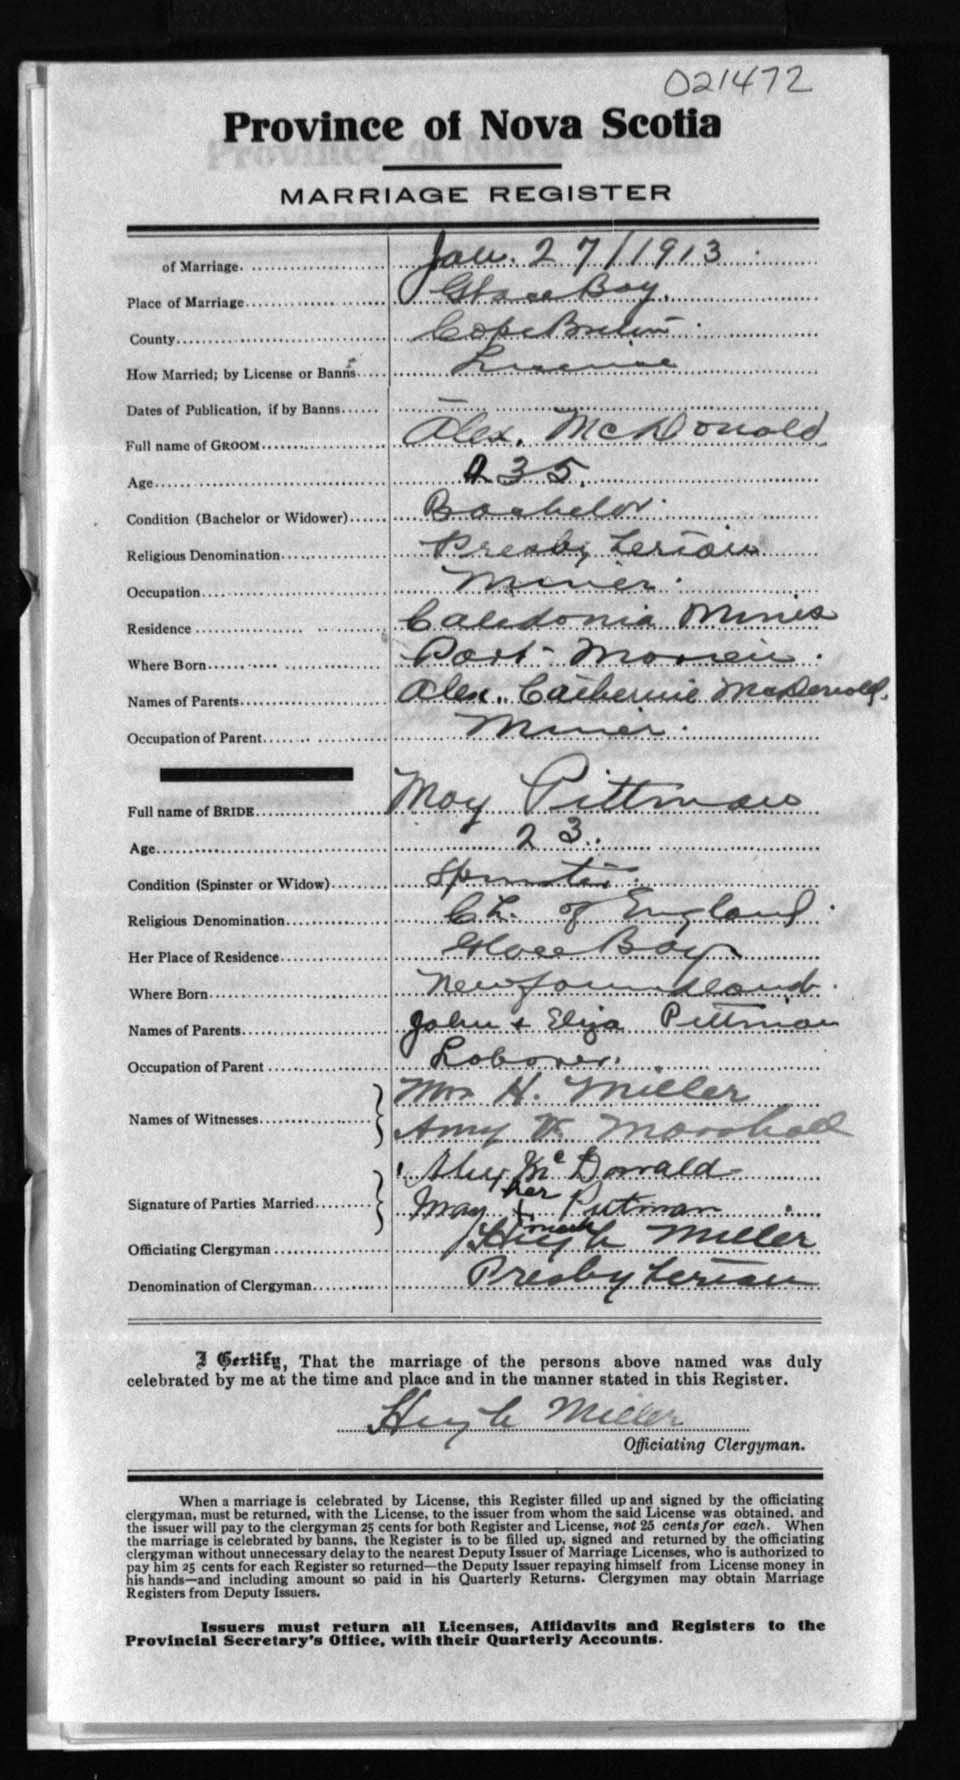 021472
Province of Nova Scotia
MARRIAGE REGISTER
of Marriage. Jan. 27/1913
Place of Marriage Glace Bay.
County Cape Breton
How Married; by License or Banns License
Dates of Publication, if by Banns
Full name of GROOM Alex. McDonald
Age 35.
Condition (Bachelor or Widower) Bachelor
Religious Denomination Presbyterian
Occupation Miner
Residence Caledonia Mines
Where Born Port Morien
Names of Parents Alex. Catherine McDonald
Occupation of Parent Miner
Full name of BRIDE May Pittman
Age 23
Condition (Spinster or Widow) Spinster
Religious Denomination Ch. of England
Her Place of Residence Glace Bay
Where Born Newfoundland
Names of Parents John + Eliza Pittman
Occupation of Parent Laborer.
Names of Witnesses Mrs H. Miller
Amy Marshall
Signature of Parties Married Alex Mc Donald
her
May + Pittman
mark
Officiating Clergyman Hugh Miller
Denomination of Clergyman Presbyterian
I Certify, That the marriage of the persons above named was duly
celebrated by me at the time and place and in the manner stated in this Register.
Hugh Miller
Officiating Clergyman.
When a marriage is celebrated by License, this Register filled up and signed by the officiating
clergyman, must be returned, with the License, to the issuer from whom the said License was obtained, and
the issuer will pay to the clergyman 25 cents for both Register and License, not 25 cents for each. When
the marriage is celebrated by banns, the Register is to be filled up, signed and returned by the officiating
clergyman without unnecessary delay to the nearest Deputy Issuer of Marriage Licenses, who is authorized to
pay him 25 cents for each Register so returned—the Deputy Issuer repaying himself from License money in
his hands—and including amount so paid in his Quarterly Returns. Clergymen may obtain Marriage
Registers from Deputy Issuers.
Issuers must return all Licenses, Affidavits and Registers to the
Provincial Secretary's Office, with their Quarterly Accounts.